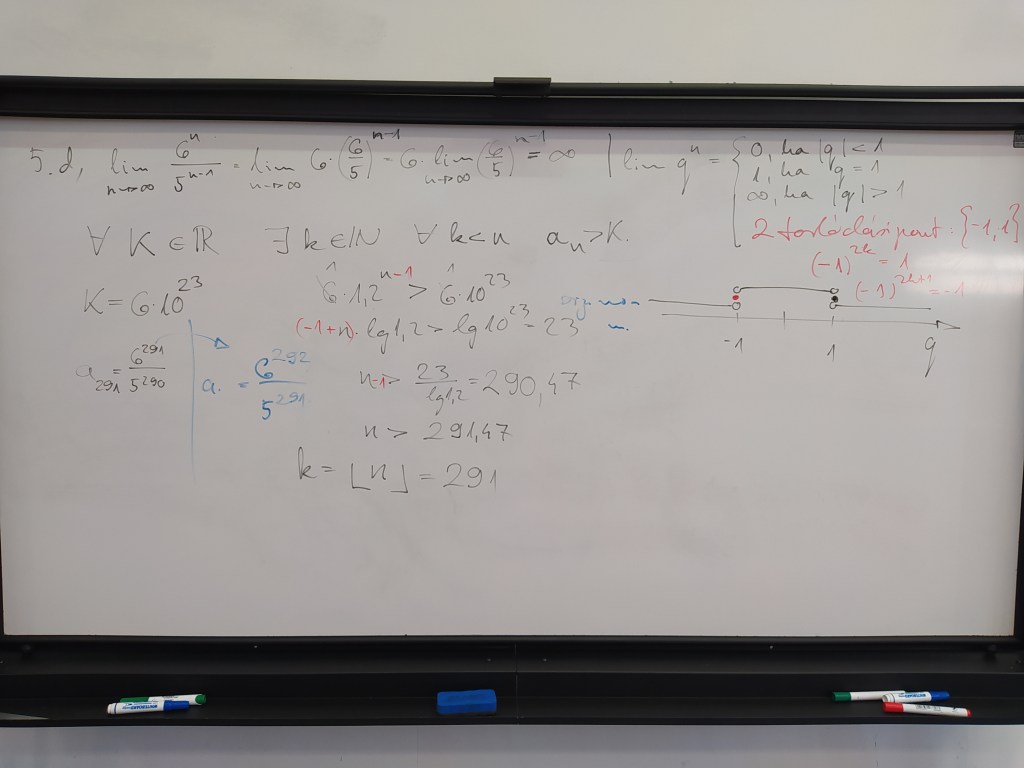 5.d, lim n→∞ 6^n / 5^(n-1) = lim n→∞ 6·(6/5)^(n-1) = 6·lim n→∞ (6/5)^(n-1) = ∞ | lim q^n = { 0, ha |q| < 1
1, ha q = 1
∞, ha |q| > 1
2 torlódási pont: {-1,1}
(-1)^(2k) = 1
(-1)^(2k+1) = -1
∀ K ∈ ℝ ∃ k ∈ ℕ ∀ k < n a_n > K.
K = 6·10^23
6·1,2^(n-1) > 6·10^23
(-1+n)·lg1,2 > lg10^23 = 23
n-1 > 23 / lg1,2 = 290,47
n > 291,47
k = ⌊n⌋ = 291
a_291 = 6^291 / 5^290
a. = 6^292 / 5^291
-1 1 q